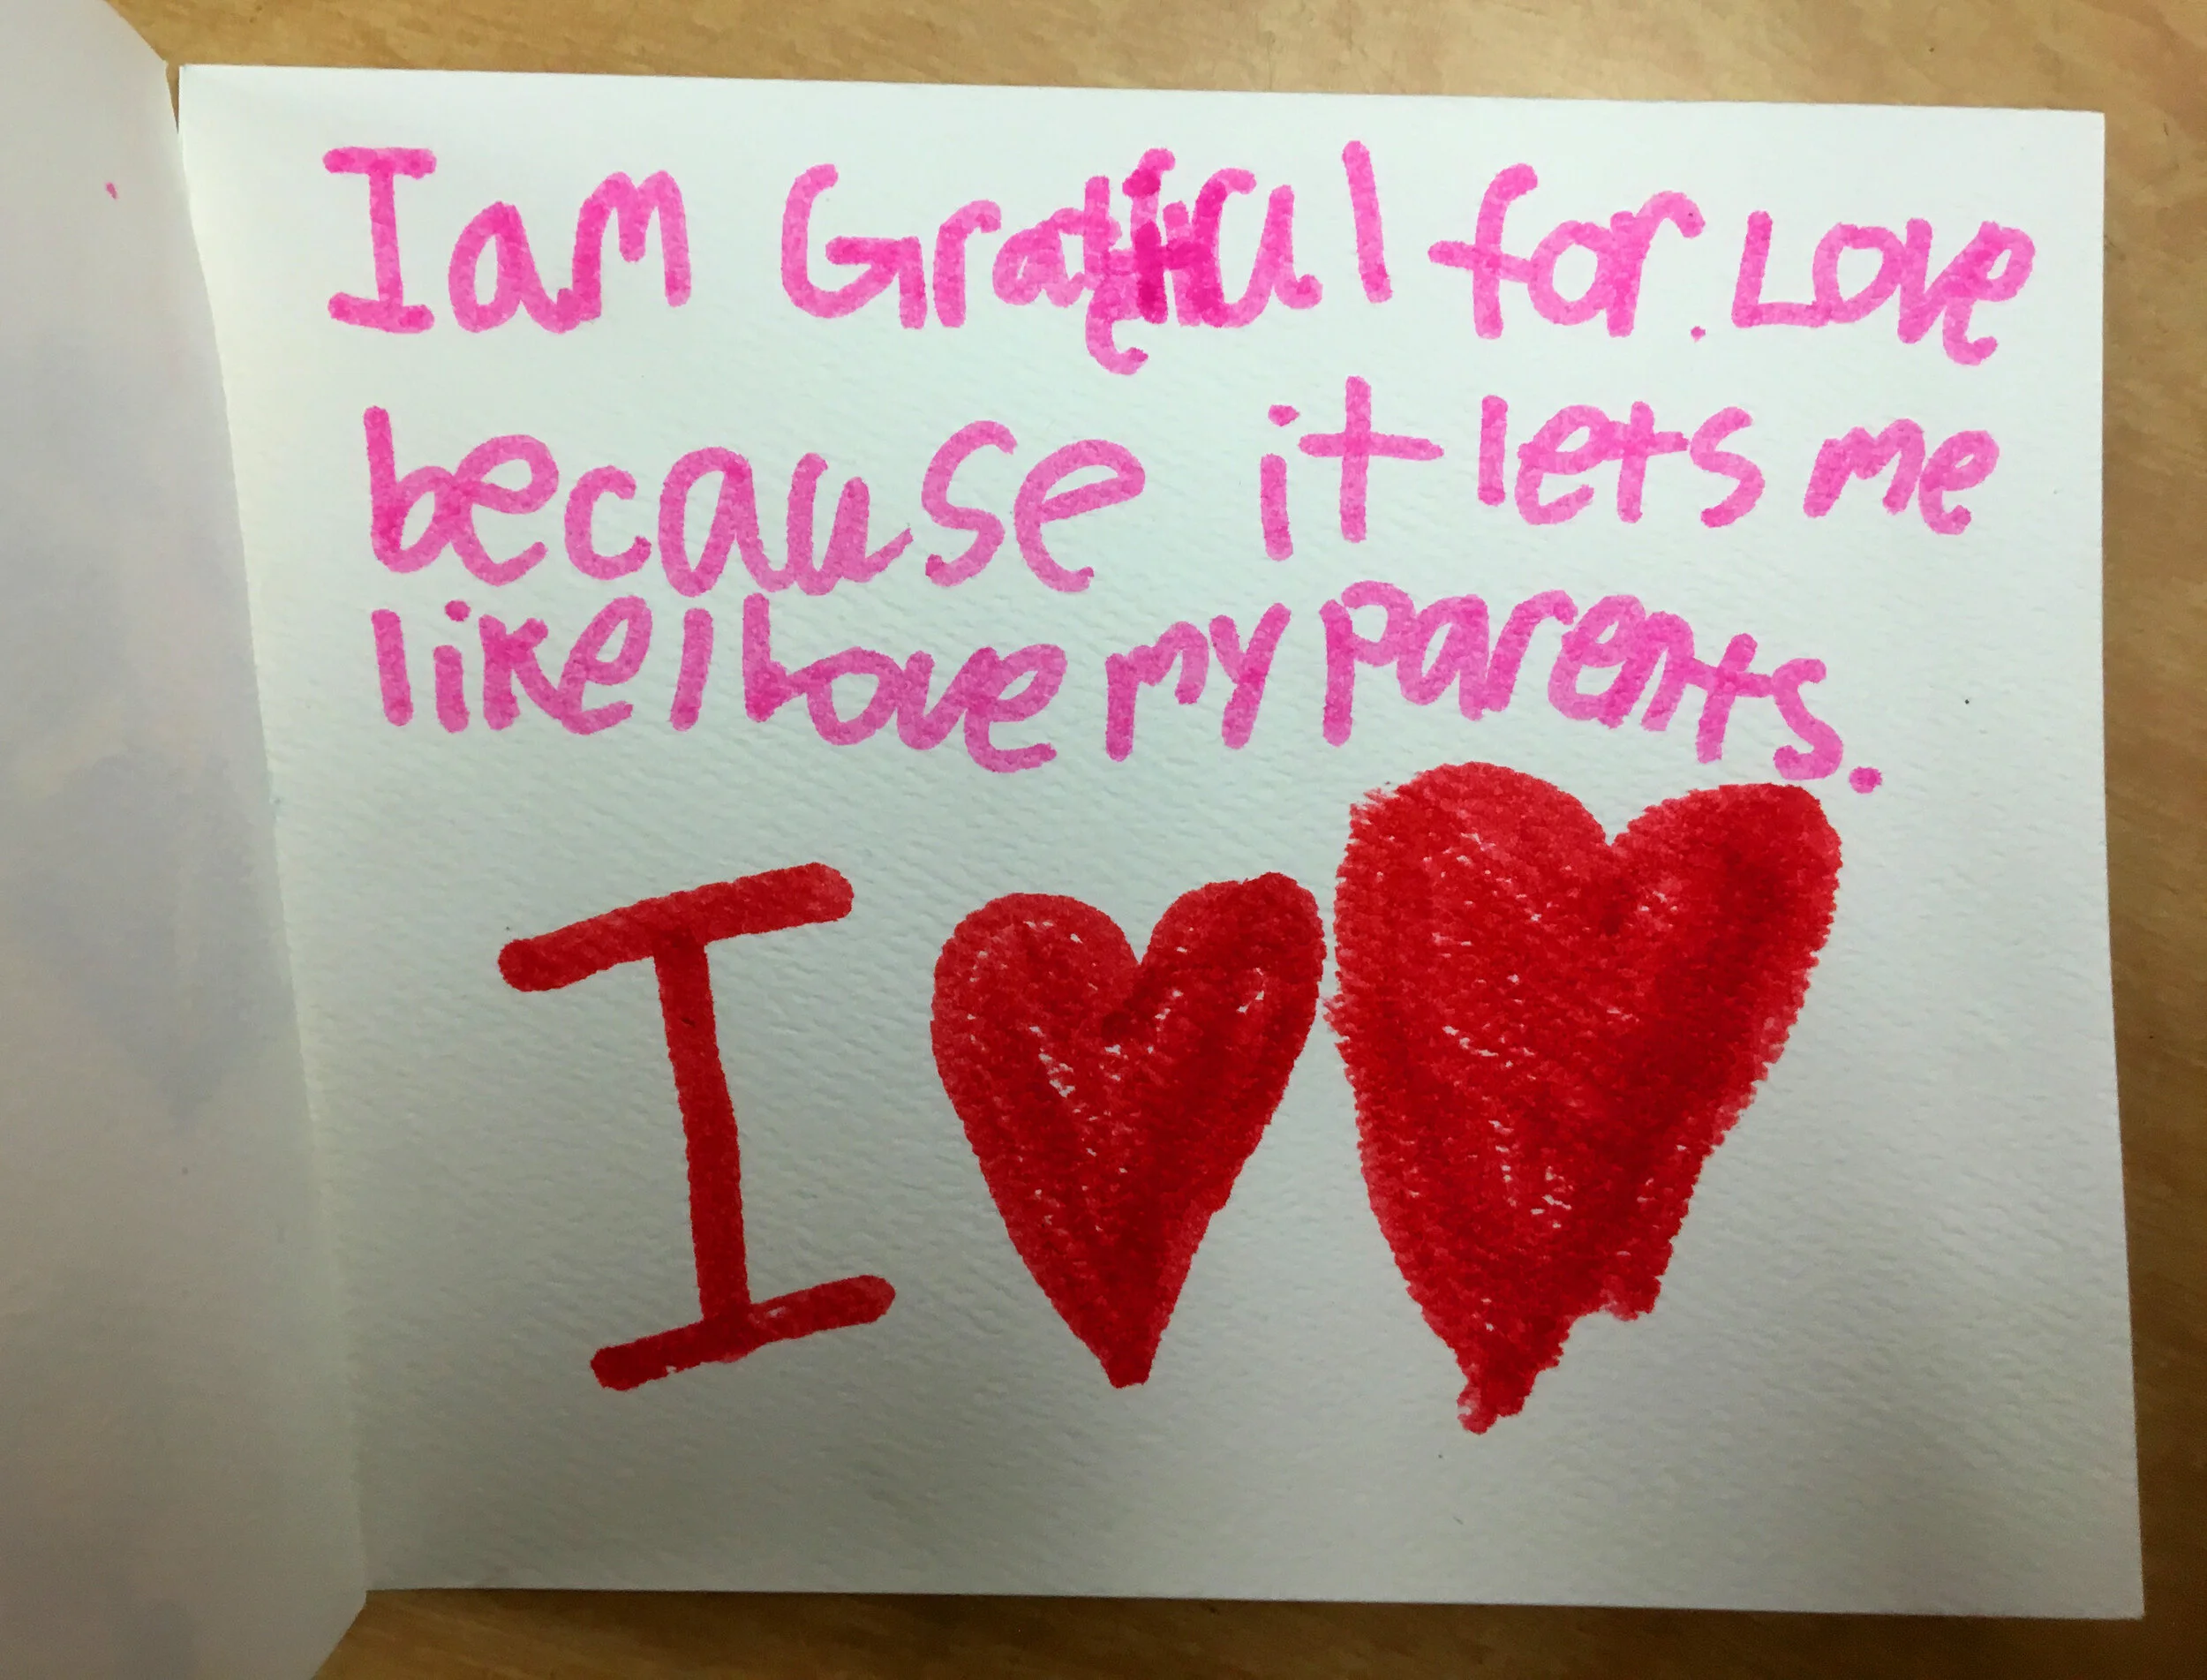 I am Grateful for Love
because it lets me
like I love my parents.
I